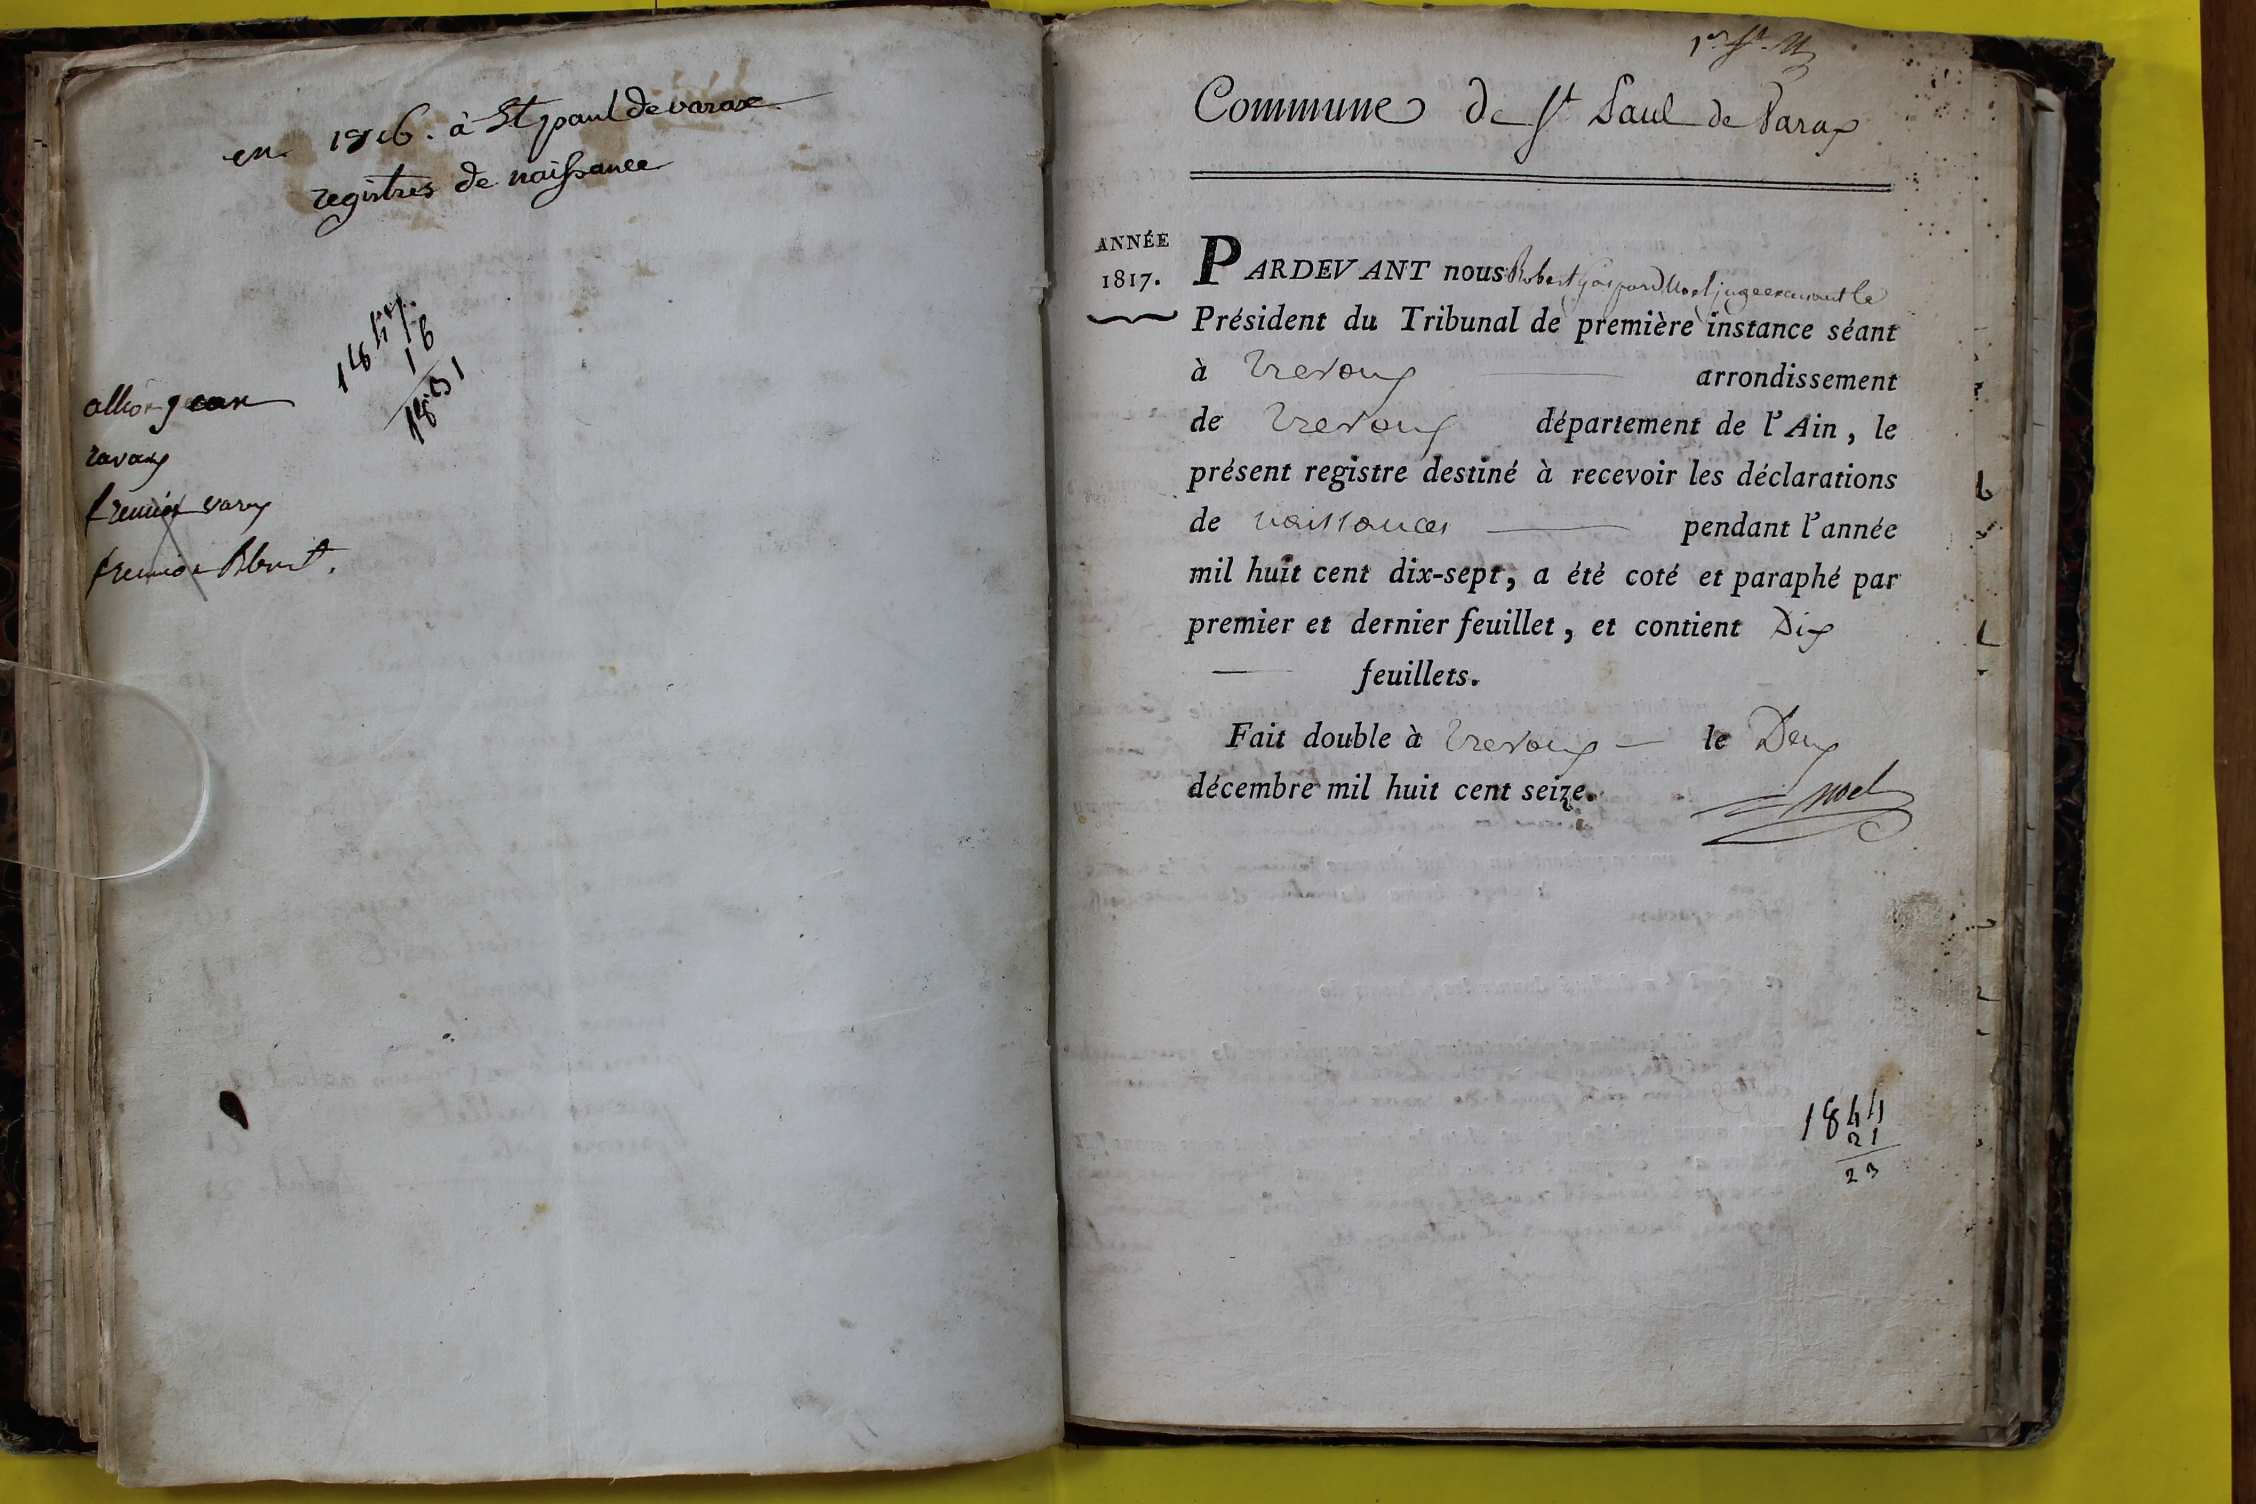 en 1816. à St paul de varax
registres de naissance
1847.
16
1831
allion jean
ravax
varax
1er ft.
Commune de St Paul de Varax
ANNÉE
1817.
PARDEVANT nous Robert Gaspard Noel juge exerçant le
Président du Tribunal de première instance séant
à Trevoux arrondissement
de Trevoux département de l'Ain, le
présent registre destiné à recevoir les déclarations
de naissances pendant l'année
mil huit cent dix-sept, a été coté et paraphé par
premier et dernier feuillet, et contient Dix
feuillets.
Fait double à Trevoux le Deux
décembre mil huit cent seize.
Noel
1844
21
23